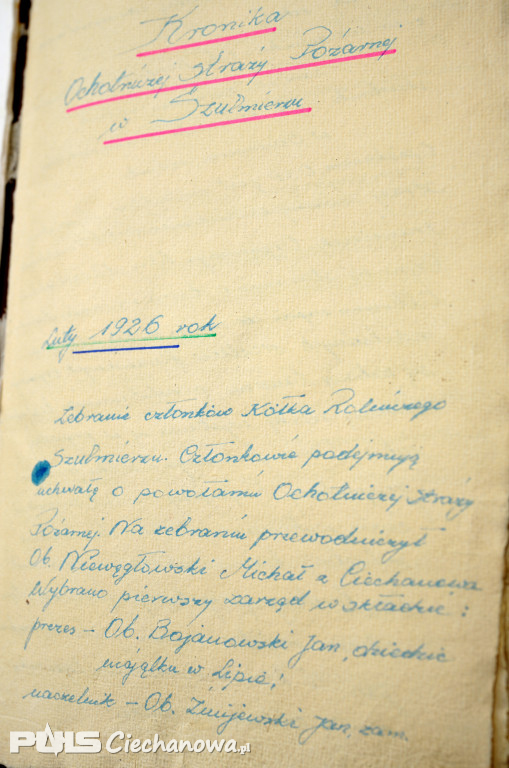 Kronika
Ochotniczej Straży Pożarnej
w Szulmierzu.
Luty 1926 rok
Zebranie członków Kółka Rolniczego
Szulmierzu. Członkowie podejmują
uchwałę o powołaniu Ochotniczej Straży
Pożarnej. Na zebraniu przewodniczył
Ob. Niewęgłowski Michał z Ciechanowa
Wybrano pierwszy zarząd w składzie:
prezes - Ob. Bojanowski Jan, dziedzic
majątku w Lipie;
naczelnik - Ob. Żmijewski Jan, zam.
PULS Ciechanowa.pl